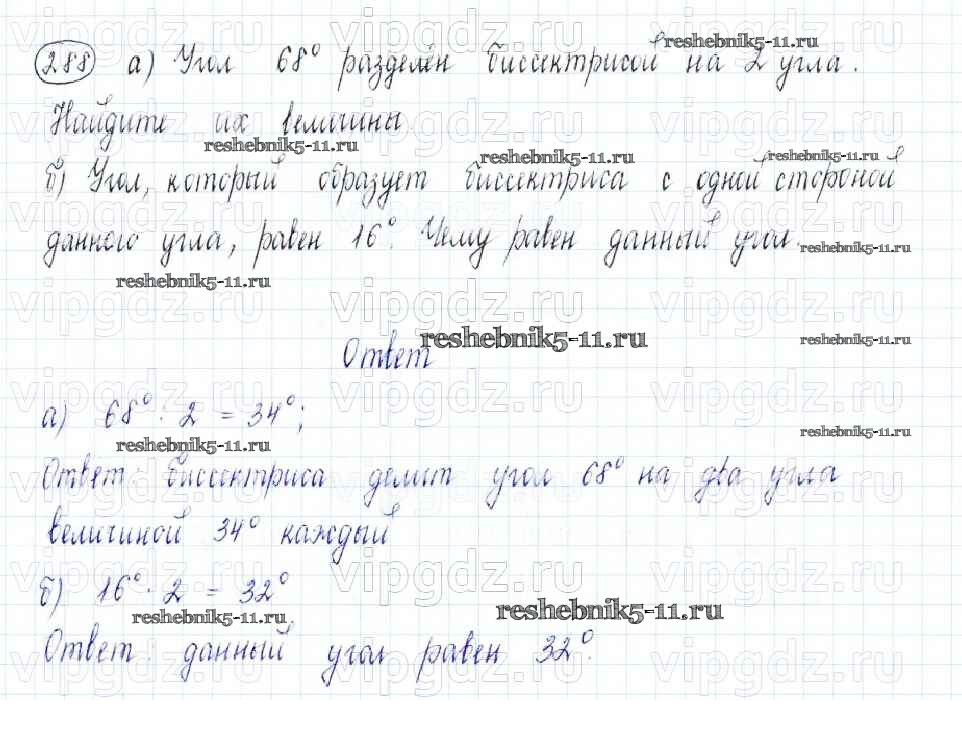 288 а) Угол 68° разделён биссектрисой на 2 угла.
Найдите их величины.
б) Угол, который образует биссектриса с одной стороной
данного угла, равен 16°. Чему равен данный угол.
Ответ
а) 68° : 2 = 34°;
Ответ: биссектриса делит угол 68° на два угла
величиной 34° каждый
б) 16° · 2 = 32°
Ответ: данный угол равен 32°.
vipgdz.ru
reshebnik5-11.ru